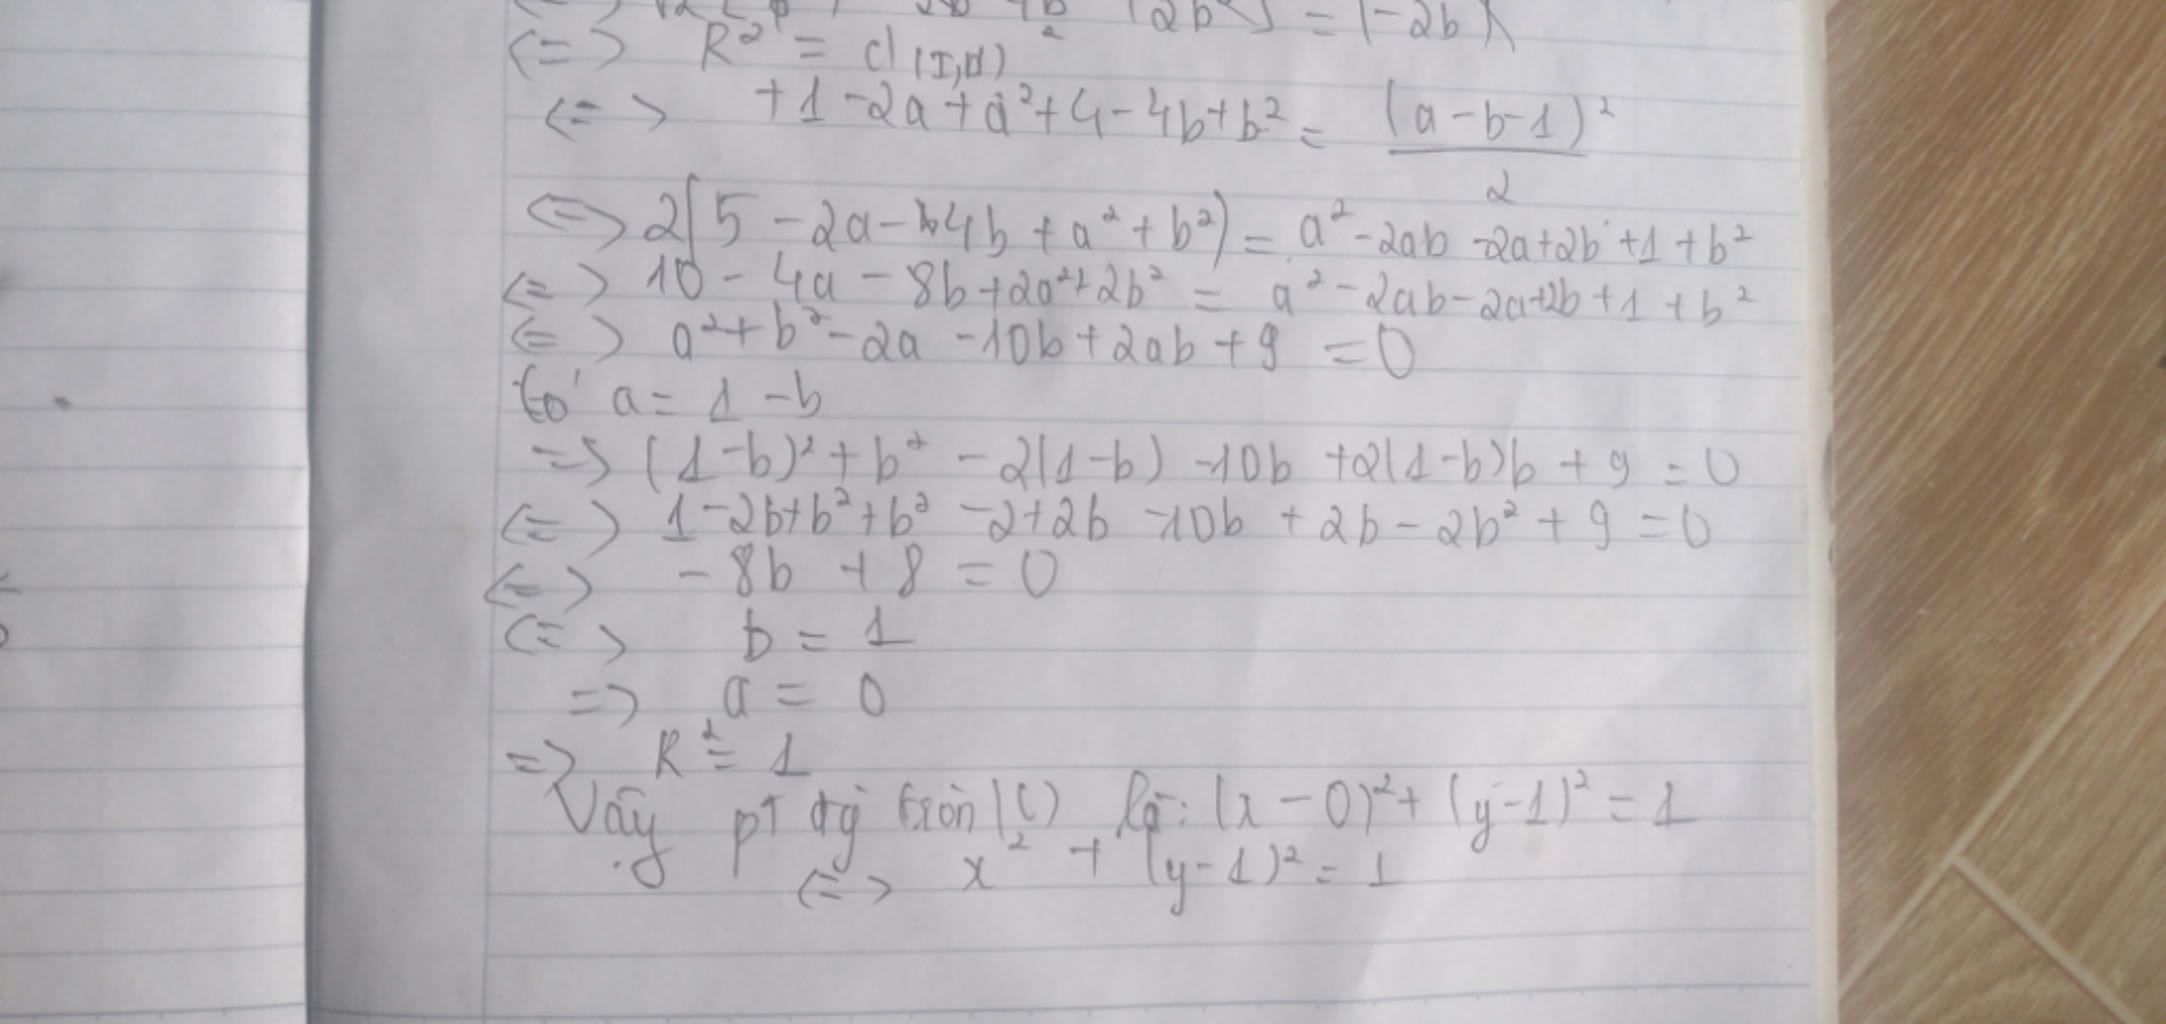 <=> R² = d(I,Δ)²
<=> +1 - 2a + a² + 4 - 4b + b² = (a - b - 1)² / 2
<=> 2(5 - 2a - 4b + a² + b²) = a² - 2ab - 2a + 2b + 1 + b²
<=> 10 - 4a - 8b + 2a² + 2b² = a² - 2ab - 2a + 2b + 1 + b²
<=> a² + b² - 2a - 10b + 2ab + 9 = 0
Có a = 1 - b
=> (1 - b)² + b² - 2(1 - b) - 10b + 2(1 - b)b + 9 = 0
<=> 1 - 2b + b² + b² - 2 + 2b - 10b + 2b - 2b² + 9 = 0
<=> - 8b + 8 = 0
<=> b = 1
=> a = 0
=> R² = 1
Vậy pt đg tròn (C) là: (x - 0)² + (y - 1)² = 1
<=> x² + (y - 1)² = 1